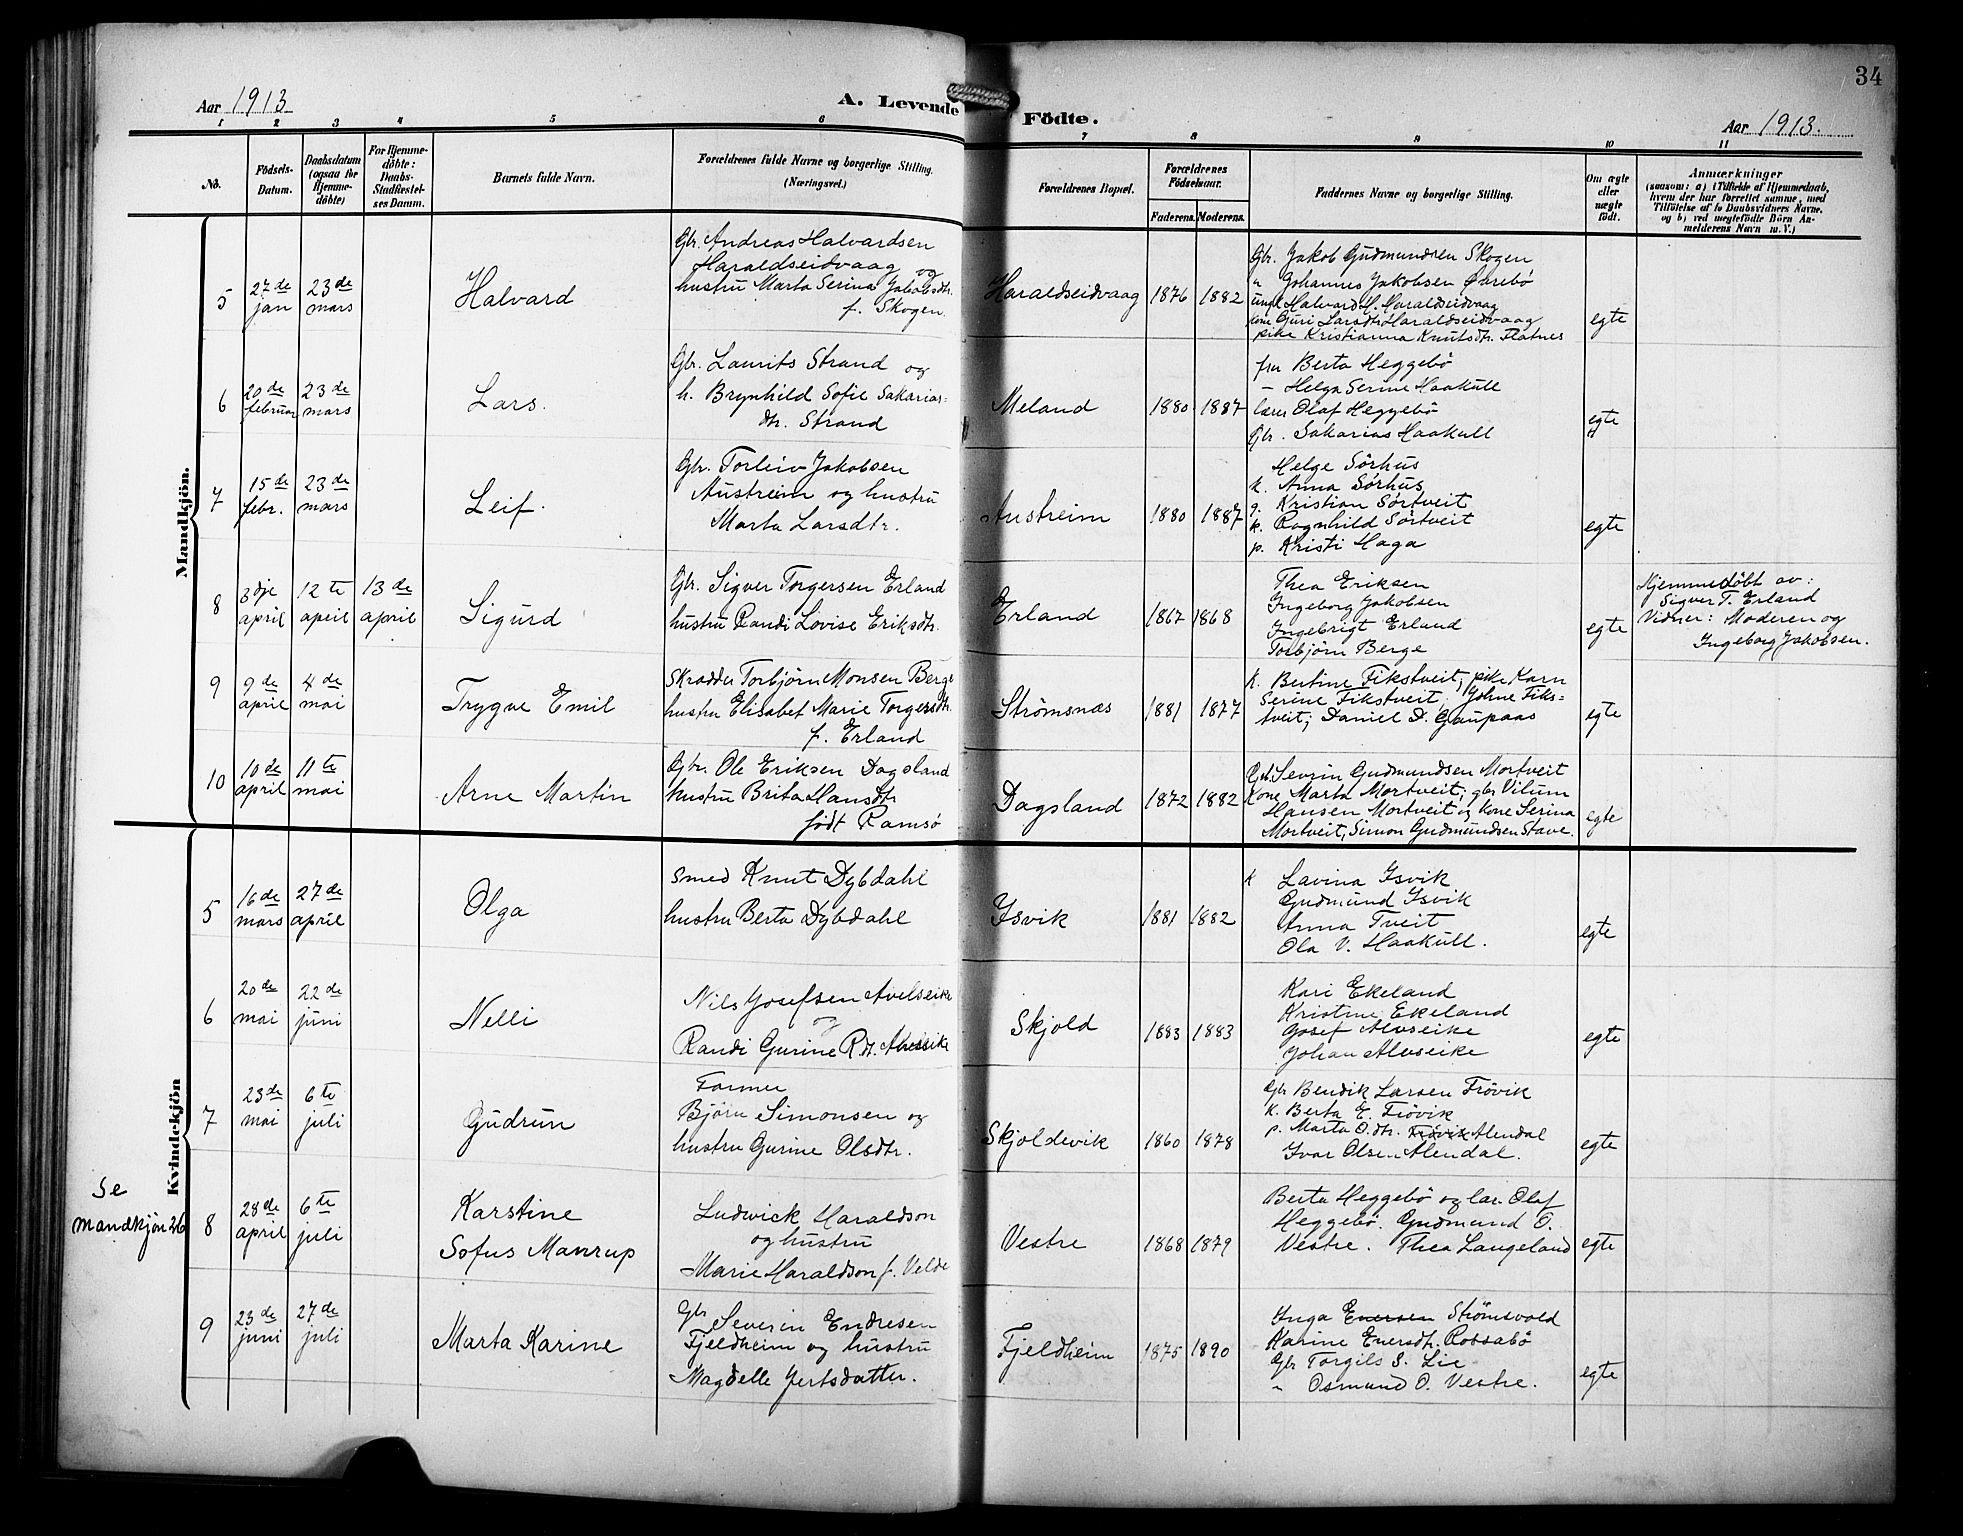 34
Aar 1913
A. Levende Födte.
Aar 1913.
1 2 3 4 5 6 7 8 9 10 11
No.
Födsels-
Datum.
Daabsdatum
(ogsaa for
Hjemme-
döbte)
For Hjemme-
döbte:
Daabs-
Stadfæstel-
ses Datum.
Barnets fulde Navn.
Forældrenes fulde Navne og borgerlige Stilling.
(Næringsvei.)
Forældrenes Bopæl.
Forældrenes
Födselsaar.
Faderens. Moderens.
Faddernes Navne og borgerlige Stilling.
Om ægte
eller
uægte
födt.
Anmærkninger
(saasom: a) i Tilfælde af Hjemmedaab,
hvem der har forrettet samme, med
Tilföielse af to Daabsvidners Navne,
og b) ved uægtefödte Börn An-
melderens Navn m. V.)
Mandkjön.
5
27de
jan
23de
mars
Halvard
Gbr. Andreas Halvardsen
Haraldseidvaag og
hustru Marta Serina Jakobsdtr.
f. Skogen.
Haraldseidvaag
1876
1882
Gbr. Jakob Gudmundsen Skogen
" Johannes Jakobsen Övrebö
ungk Halvard H. Haraldseidvaag
kone Guri Larsdtr Haraldseidvaag
pike Kristianna Knutsdtr. Flatnes
egte
6
20de
februar
23de
mars
Lars.
Gbr. Laurits Strand og
h. Brynhild Sofie Sakarias-
dtr. Strand
Meland
1880
1887
fru Berta Heggebö
– Helga Serine Haakull
lærer Olaf Heggebö
Gbr. Sakarias Haakull
egte
7
15de
febr.
23de
mars
Leif.
Gbr. Torleiv Jakobsen
Austreim og hustru
Marta Larsdtr.
Austreim
1880
1887
Helge Sörhus
k. Anna Sörhus
g. Kristian Sörtveit
k. Ragnhild Sörtveit
p. Kristi Haga
egte
8
3dje
april
12te
april
13de
april
Sigurd
Gbr. Sigver Torgersen Erland
hustru Randi Lovise Eriksdtr.
Erland
1867
1868
Thea Eriksen
Ingeborg Jakobsen
Ingebrigt Erland
Torbjörn Berge
egte
Hjemmedöbt av:
Sigver T. Erland
Vidner: Moderen og
Ingeborg Jakobsen.
9
9de
april
4de
mai
Trygve Emil
Skrædder Torbjörn Monsen Berge
hustru Elisabet Marie Torgersdtr.
f. Erland
Strömsnæs
1881
1877
k. Bertine Fikstveit, pike Karn
Serine Fikstveit, Johne Fiks-
tveit; Daniel D. Gaupaas
egte
10
10de
april
11te
mai
Arne Martin
Gbr. Ole Eriksen Dagsland
hustru Brita Hansdtr
födt Ramsö
Dagsland
1872
1882
Gbr. Sevrin Gudmundsen Mortveit
Kone Marta Mortveit; gbr Vilum
Hansen Mortveit og kone Serina
Mortveit, Simon Gudmundsen Stave.
egte
Kvindekjön
5
16de
mars
27de
april
Olga
Smed Knut Dybdahl
hustru Berta Dybdahl
Isvik
1881
1882
k Lavina Isvik
Gudmund Isvik
Anna Tveit
Ola V. Haakull.
egte
6
20de
mai
22de
juni
Nelli
Nils Josefsen Avelseike
og
Randi Gurine R.dt.
Skjold
1883
1883
Kari Ekeland
Kristine Ekeland
Josef Alvseike
Johan Alvseike
egte
7
23de
mai
6te
juli
Gudrun
Farmer
Björn Simonsen og
hustru Gurine Olsdtr.
Skjoldevik
1860
1878
Gbr Bendik Larsen Frövik
k. Berta E. Frövik
p. Marta O.dtr. Frövik Alendal
Ivar Olsen Alendal.
egte
Se
mandkjön 26
8
28de
april
6te
juli
Karstine
Sofus Maurup
Ludwick Haraldson
og hustru
Marie Haraldson f. Velde
Vestre
1868
1879
Berta Heggebö og lær. Olaf
Heggebö. Gudmund O.
Vestre. Thea Langeland
egte
9
23de
juni
27de
juli
Marta Karine
Gbr Severin Endresen
Fjeldheim og hustru
Magdelle Jertsdatter.
Fjeldheim
1875
1890
Inga Eversen Strömsvold
Karine Eversdtr. Rossabö
Gbr Torgils S. Lie
" Osmund O. Vestre.
egte